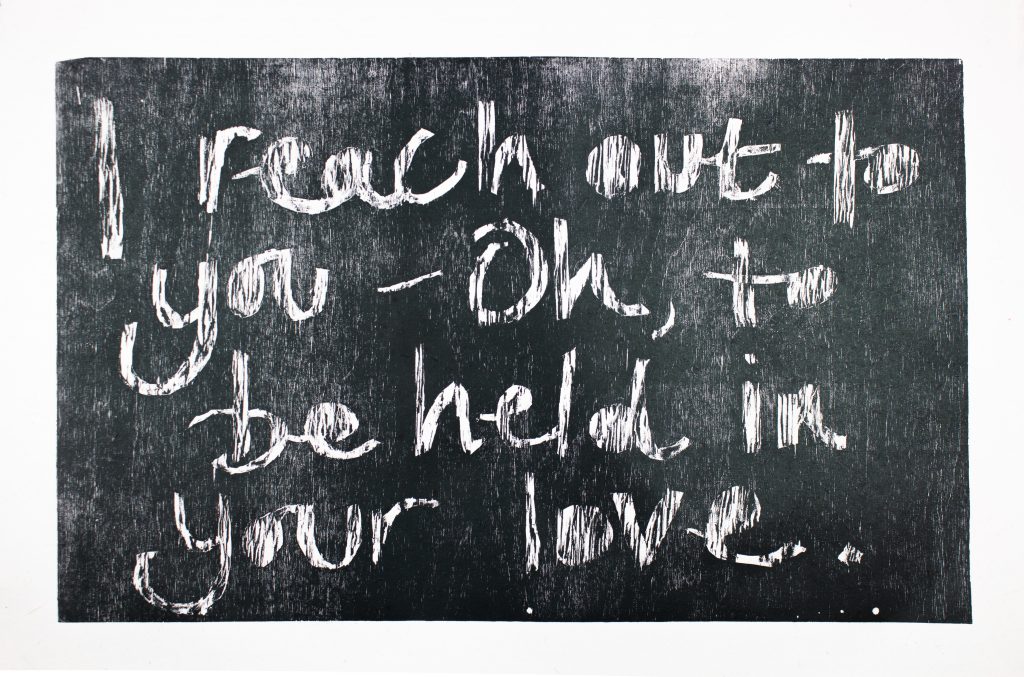 I reach out to
you - Oh, to
be held in
your love.